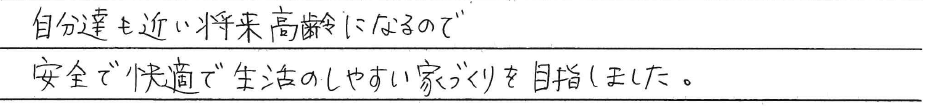 自分達も近い将来高齢になるので
安全で快適で生活のしやすい家づくりを目指しました。